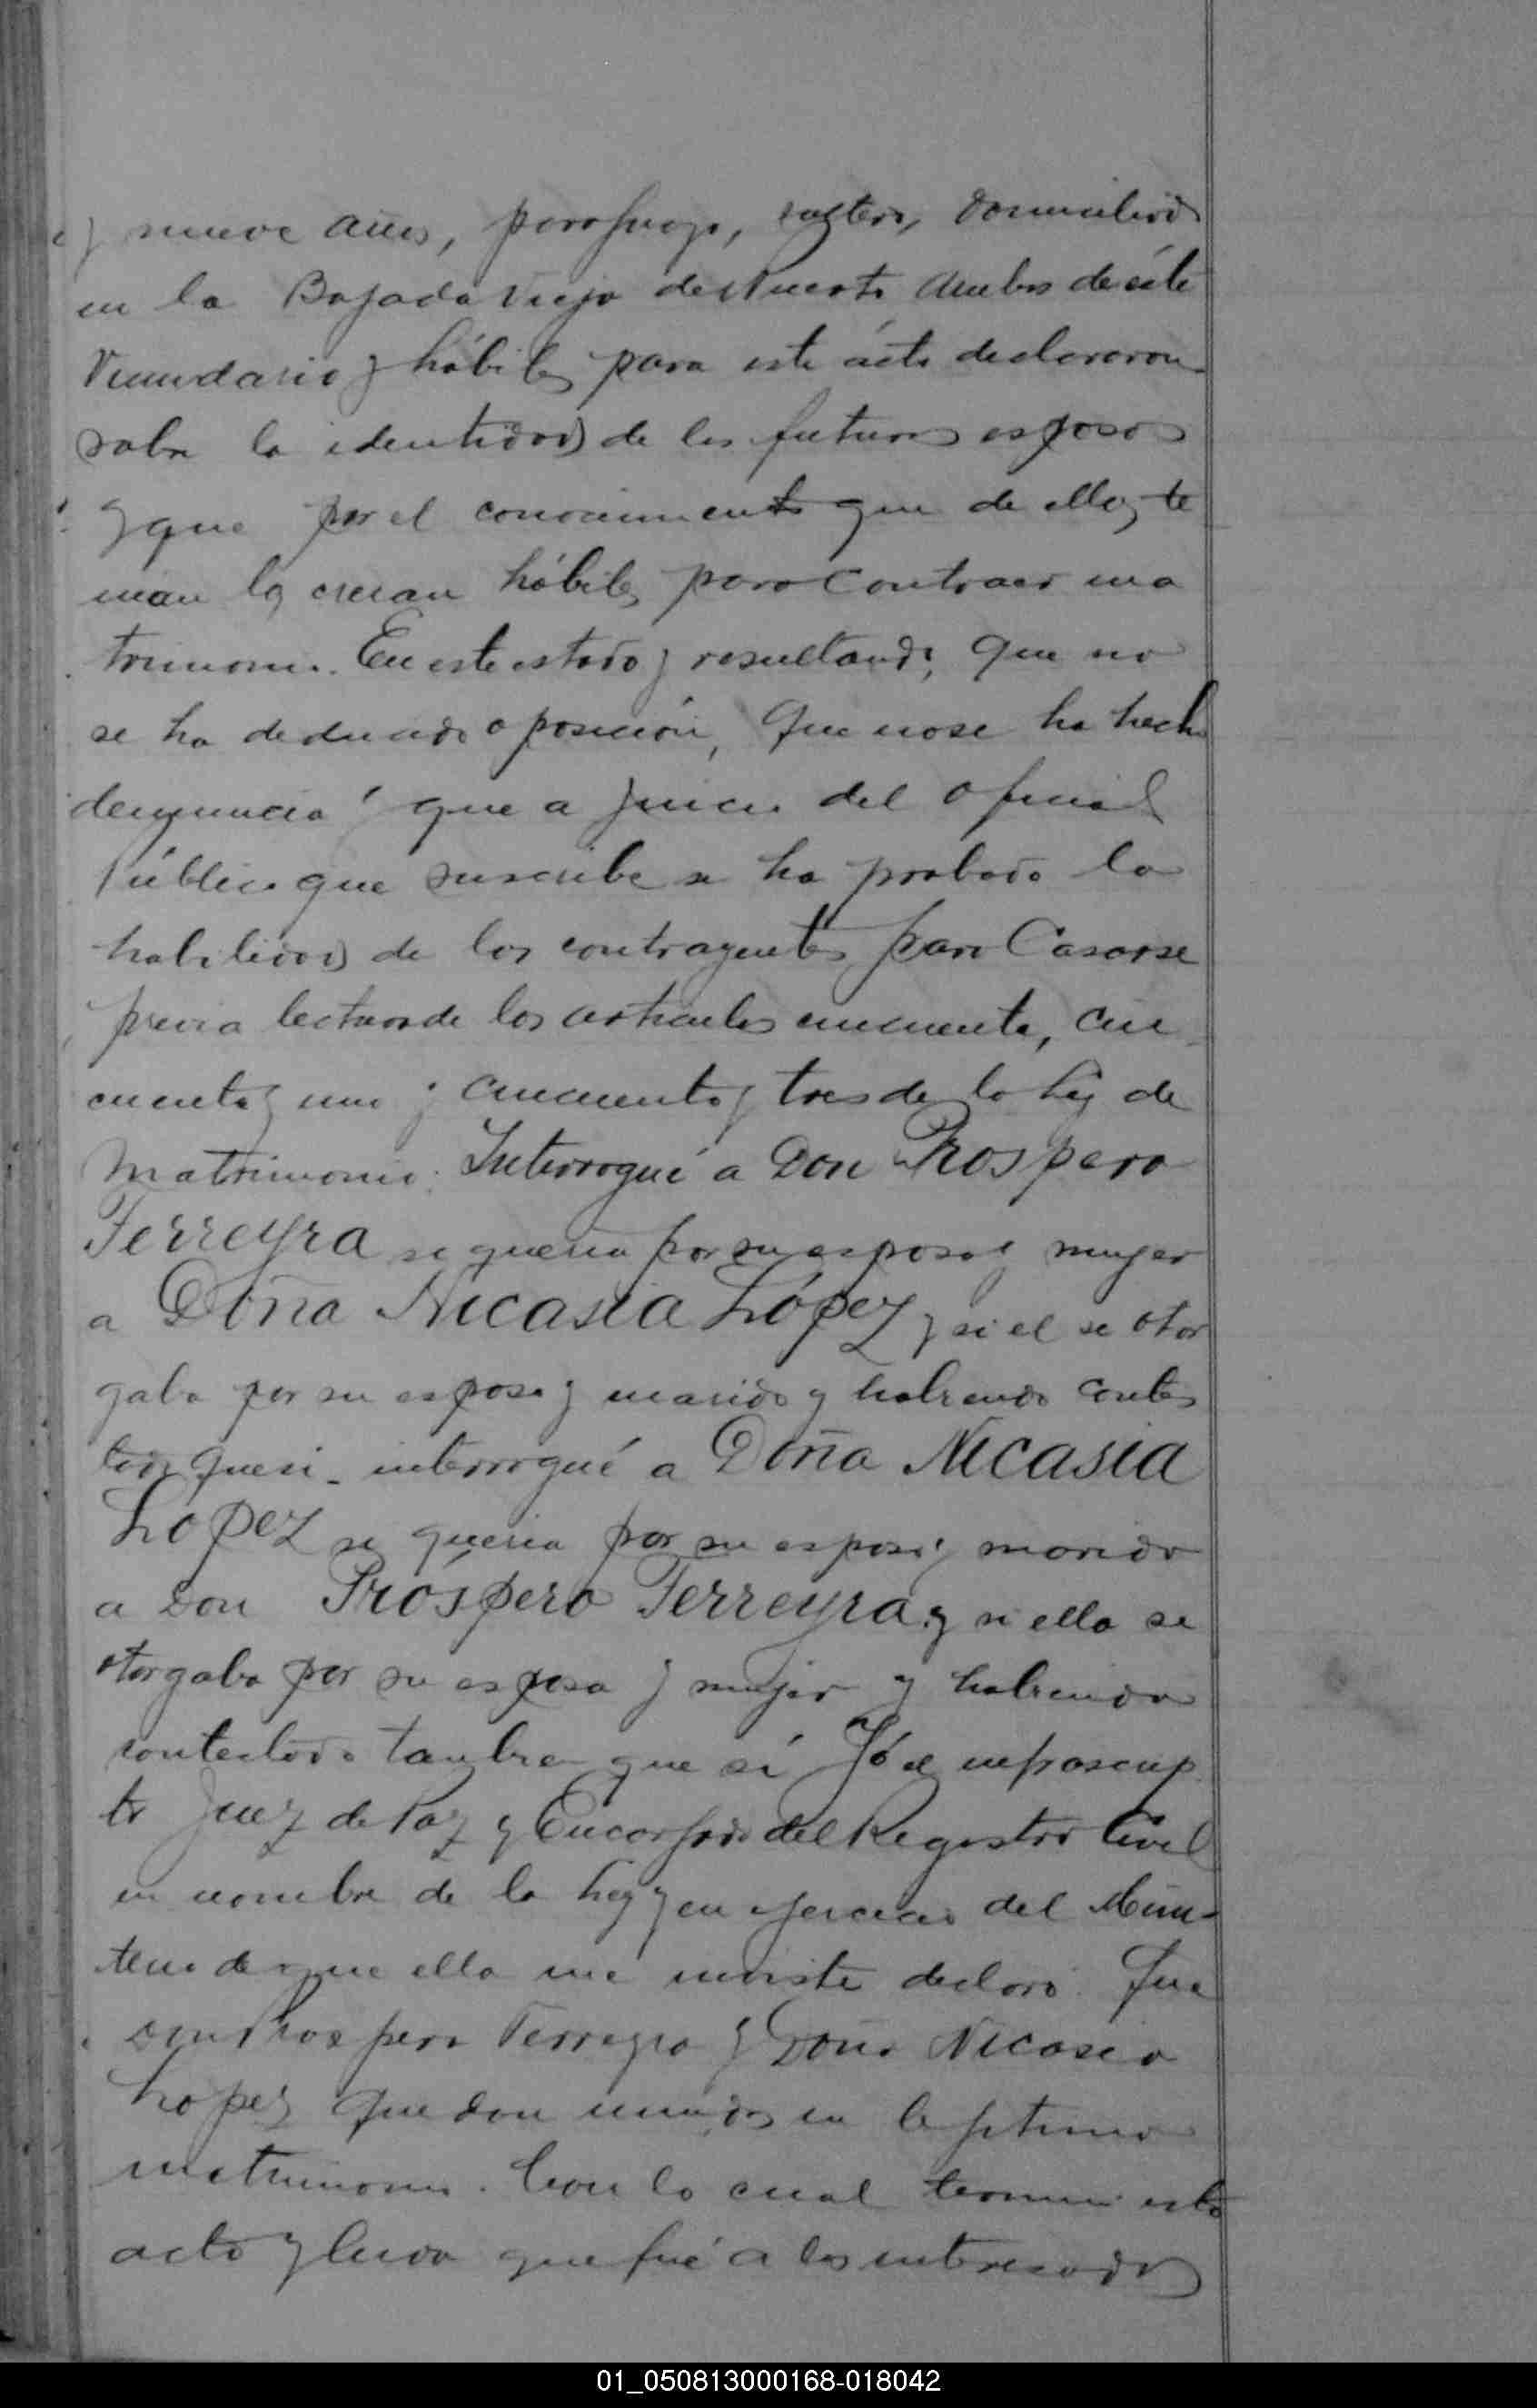 y nueve años, paraguayo, soltero, domiciliado
en la Bajada Vieja del Puerto ambos de éste
Vecindario y hábiles para este acto declararon
sobre la identidad de los futuros esposos
y que por el conocimiento que de ellos te
nian los creian hábiles para contraer ma
trimonio. En este estado y resultando; Que no
se ha deducido oposición, Que no se ha hecho
denuncia y que a juicio del oficial
Público que suscribe se ha probado la
habilidad de los contrayentes para Casarse
previa lectura de los articulos cincuenta, cin
cuenta y uno y cincuenta y tres de la Ley de
Matrimonio. Interrogué a Don Prospero
Ferreyra si queria por su esposa y mujer
a Doña Nicasia López y si el se otor
gaba por su esposo y marido y habiendo contes
tado que si. interrogué a Doña Nicasia
Lopez si queria por su esposo y marido
a Don Próspero Ferreyra y si ella se
otorgaba por su esposa y mujer y habiendo
contestado tambien que sí Yó el infrascrip
to Juez de Paz y Encargado del Registro Civil
en nombre de la Ley y en ejercicio del Minis
terio de que ella me inviste declaro: Que
Don Prospero Ferreyra y Doña Nicasia
Lopez quedan unidos en lejitimo
matrimonio. Con lo cual termino este
acto y leida que fué a los interesados
01_050813000168-018042